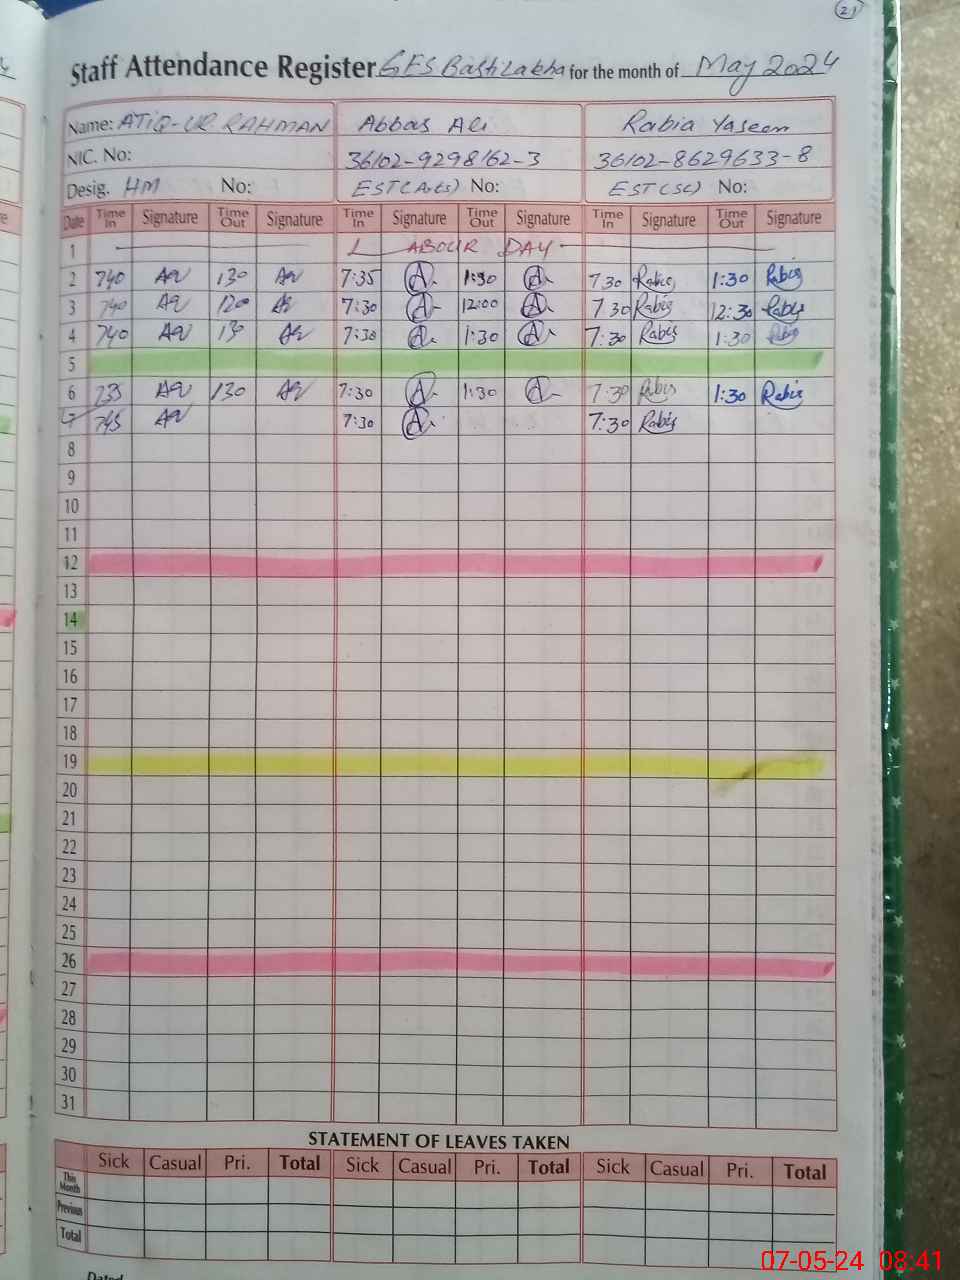 21
Staff Attendance Register GES Basti Lakha for the month of May 2024
Name: ATIQ-UR-RAHMAN Abbas Ali Rabia Yaseen
NIC. No: 36102-9298162-3 36102-8629633-8
Desig. HM No: EST(Arts) No: EST(SC) No:
Date Time In Signature Time Out Signature Time In Signature Time Out Signature Time In Signature Time Out Signature
1 LABOUR DAY
2 740 130 7:35 A 1:30 A 730 Rabia 1:30 Rabia
3 740 1200 7:30 A 12:00 A 730 Rabia 12:30 Rabia
4 740 130 7:30 A 1:30 A 7:30 Rabia 1:30 Rabia
5
6 735 130 7:30 A 1:30 A 7:30 Rabia 1:30 Rabia
7 745 7:30 A 7:30 Rabia
8
9
10
11
12
13
14
15
16
17
18
19
20
21
22
23
24
25
26
27
28
29
30
31
STATEMENT OF LEAVES TAKEN
Sick Casual Pri. Total Sick Casual Pri. Total Sick Casual Pri. Total
This Month
Previous
Total
Dated
07-05-24 08:41